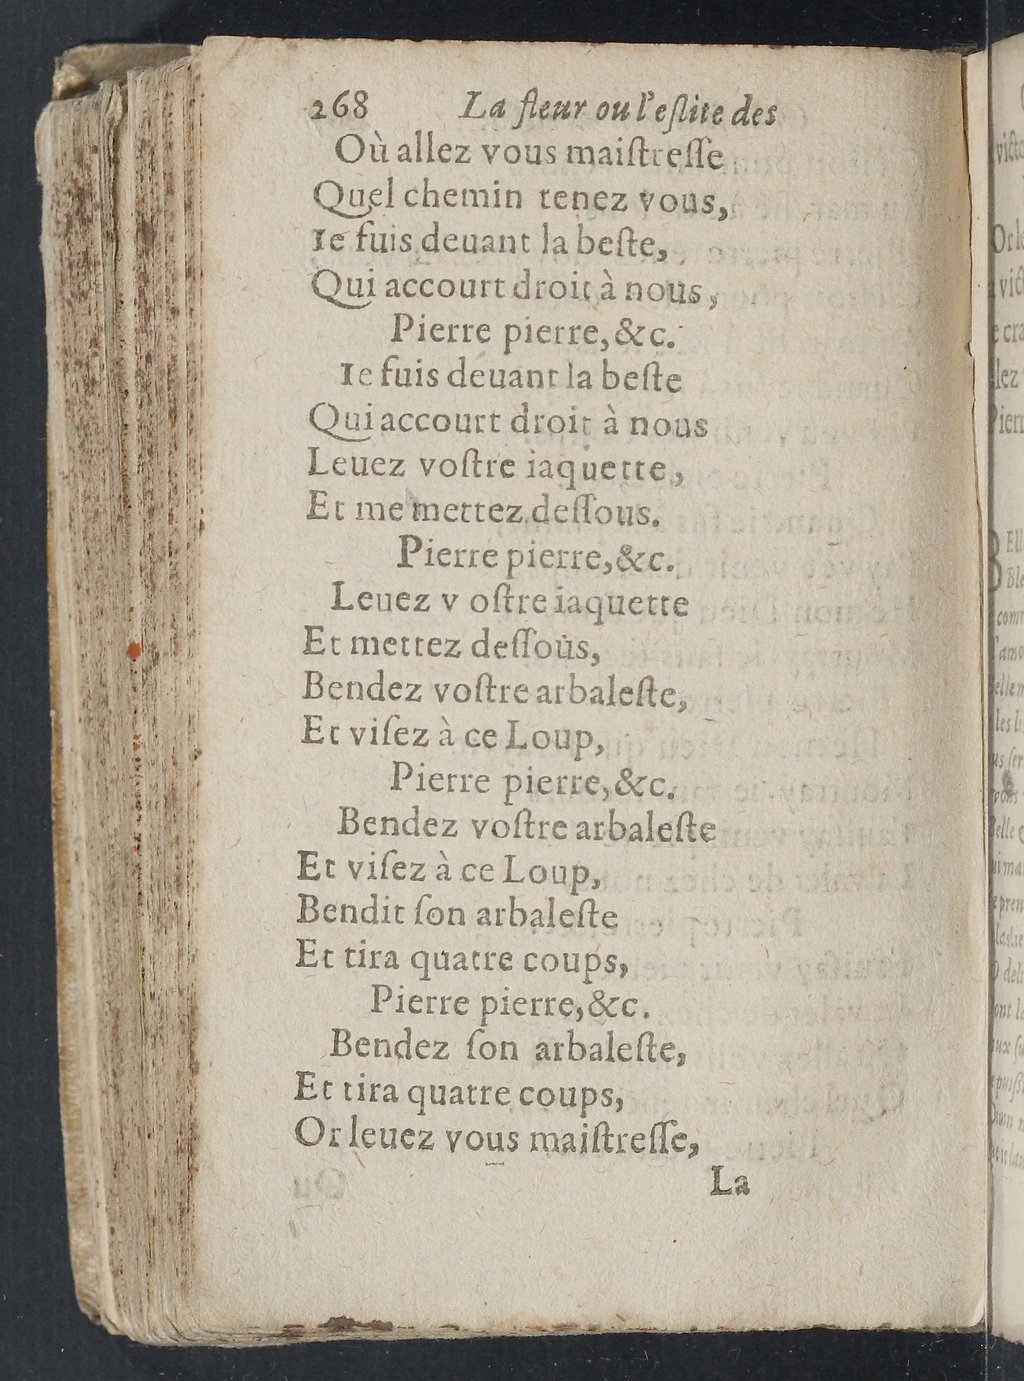 268 La fleur ou l'eſlite des
Où allez vous maiſtreſſe
Quel chemin tenez vous,
Ie fuis deuant la beſte,
Qui accourt droit à nous,
Pierre pierre, &c.
Ie fuis deuant la beſte
Qui accourt droit à nous
Leuez voſtre iaquette,
Et me mettez deſſous.
Pierre pierre, &c.
Leuez v oſtre iaquette
Et mettez deſſous,
Bendez voſtre arbaleſte,
Et viſez à ce Loup,
Pierre pierre, &c.
Bendez voſtre arbaleſte
Et viſez à ce Loup,
Bendit ſon arbaleſte
Et tira quatre coups,
Pierre pierre, &c.
Bendez ſon arbaleſte,
Et tira quatre coups,
Or leuez vous maiſtreſſe,
La